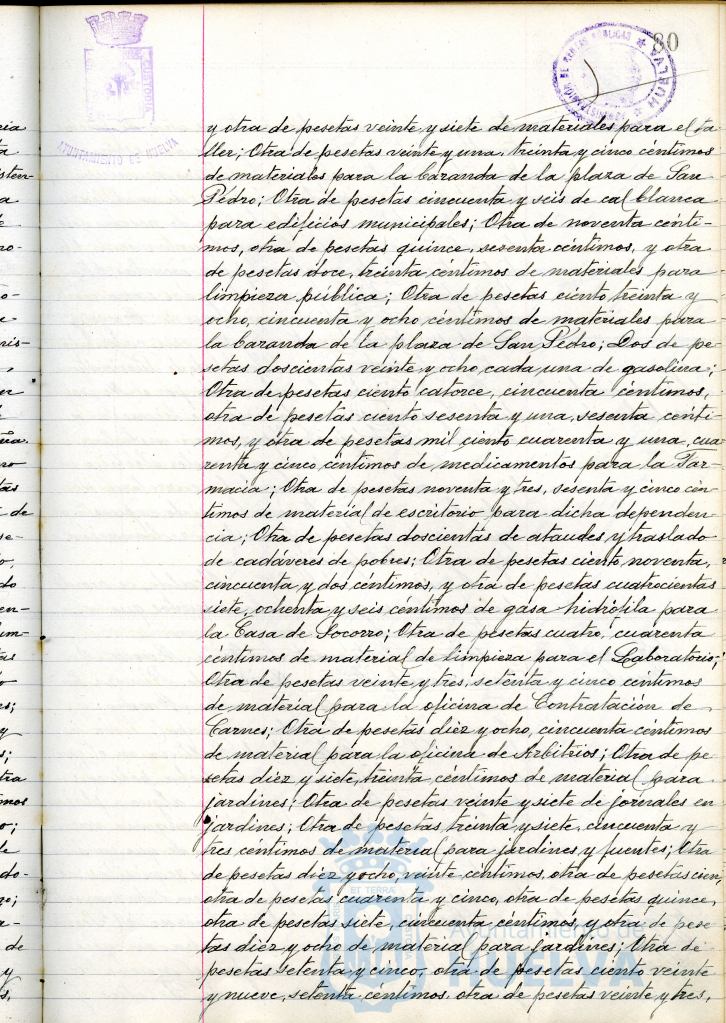 80
AYUNTAMIENTO DE HUELVA
y otra de pesetas veinte y siete de materiales para el ta
ller; Otra de pesetas veinte y una, treinta y cinco céntimos
de materiales para la baranda de la plaza de San
Pedro; Otra de pesetas cincuenta y seis de cal blanca
para edificios municipales; Otra de noventa cénti-
mos, otra de pesetas quince, sesenta céntimos, y otra
de pesetas doce, treinta céntimos de materiales para
limpieza pública; Otra de pesetas ciento treinta y
ocho, cincuenta y ocho céntimos de materiales para
la baranda de la plaza de San Pedro; Dos de pe
setas doscientas veinte y ocho cada una de gasolina;
Otra de pesetas ciento catorce, cincuenta céntimos,
otra de pesetas ciento sesenta y una, sesenta cénti-
mos, y otra de pesetas mil ciento cuarenta y una, cua
renta y cinco céntimos de medicamentos para la Far-
macia; Otra de pesetas noventa y tres, sesenta y cinco cén
timos de material de escritorio para dicha dependen-
cia; Otra de pesetas doscientas de ataudes y traslado
de cadáveres de pobres; Otra de pesetas ciento noventa,
cincuenta y dos céntimos, y otra de pesetas cuatrocientas
siete, ochenta y seis céntimos de gasa hidrófila para
la Casa de Socorro; Otra de pesetas cuatro, cuarenta
céntimos de material de limpieza para el Laboratorio;
Otra de pesetas veinte y tres, setenta y cinco céntimos
de material para la oficina de Contratación de
Carnes; Otra de pesetas diez y ocho, cincuenta céntimos
de material para la oficina de Arbitrios; Otra de pe
setas diez y siete, treinta céntimos de material para
jardines; Otra de pesetas veinte y siete de jornales en
jardines; Otra de pesetas treinta y siete, cincuenta y
tres céntimos de material para jardines y fuentes; Otra
de pesetas diez y ocho, veinte céntimos, otra de pesetas cien,
otra de pesetas cuarenta y cinco, otra de pesetas quince,
otra de pesetas siete, cincuenta céntimos, y otra de pese
tas diez y ocho de material para jardines; Otra de
pesetas setenta y cinco, otra de pesetas ciento veinte
y nueve, setenta céntimos, otra de pesetas veinte y tres,
Ayuntamiento de
HUELVA